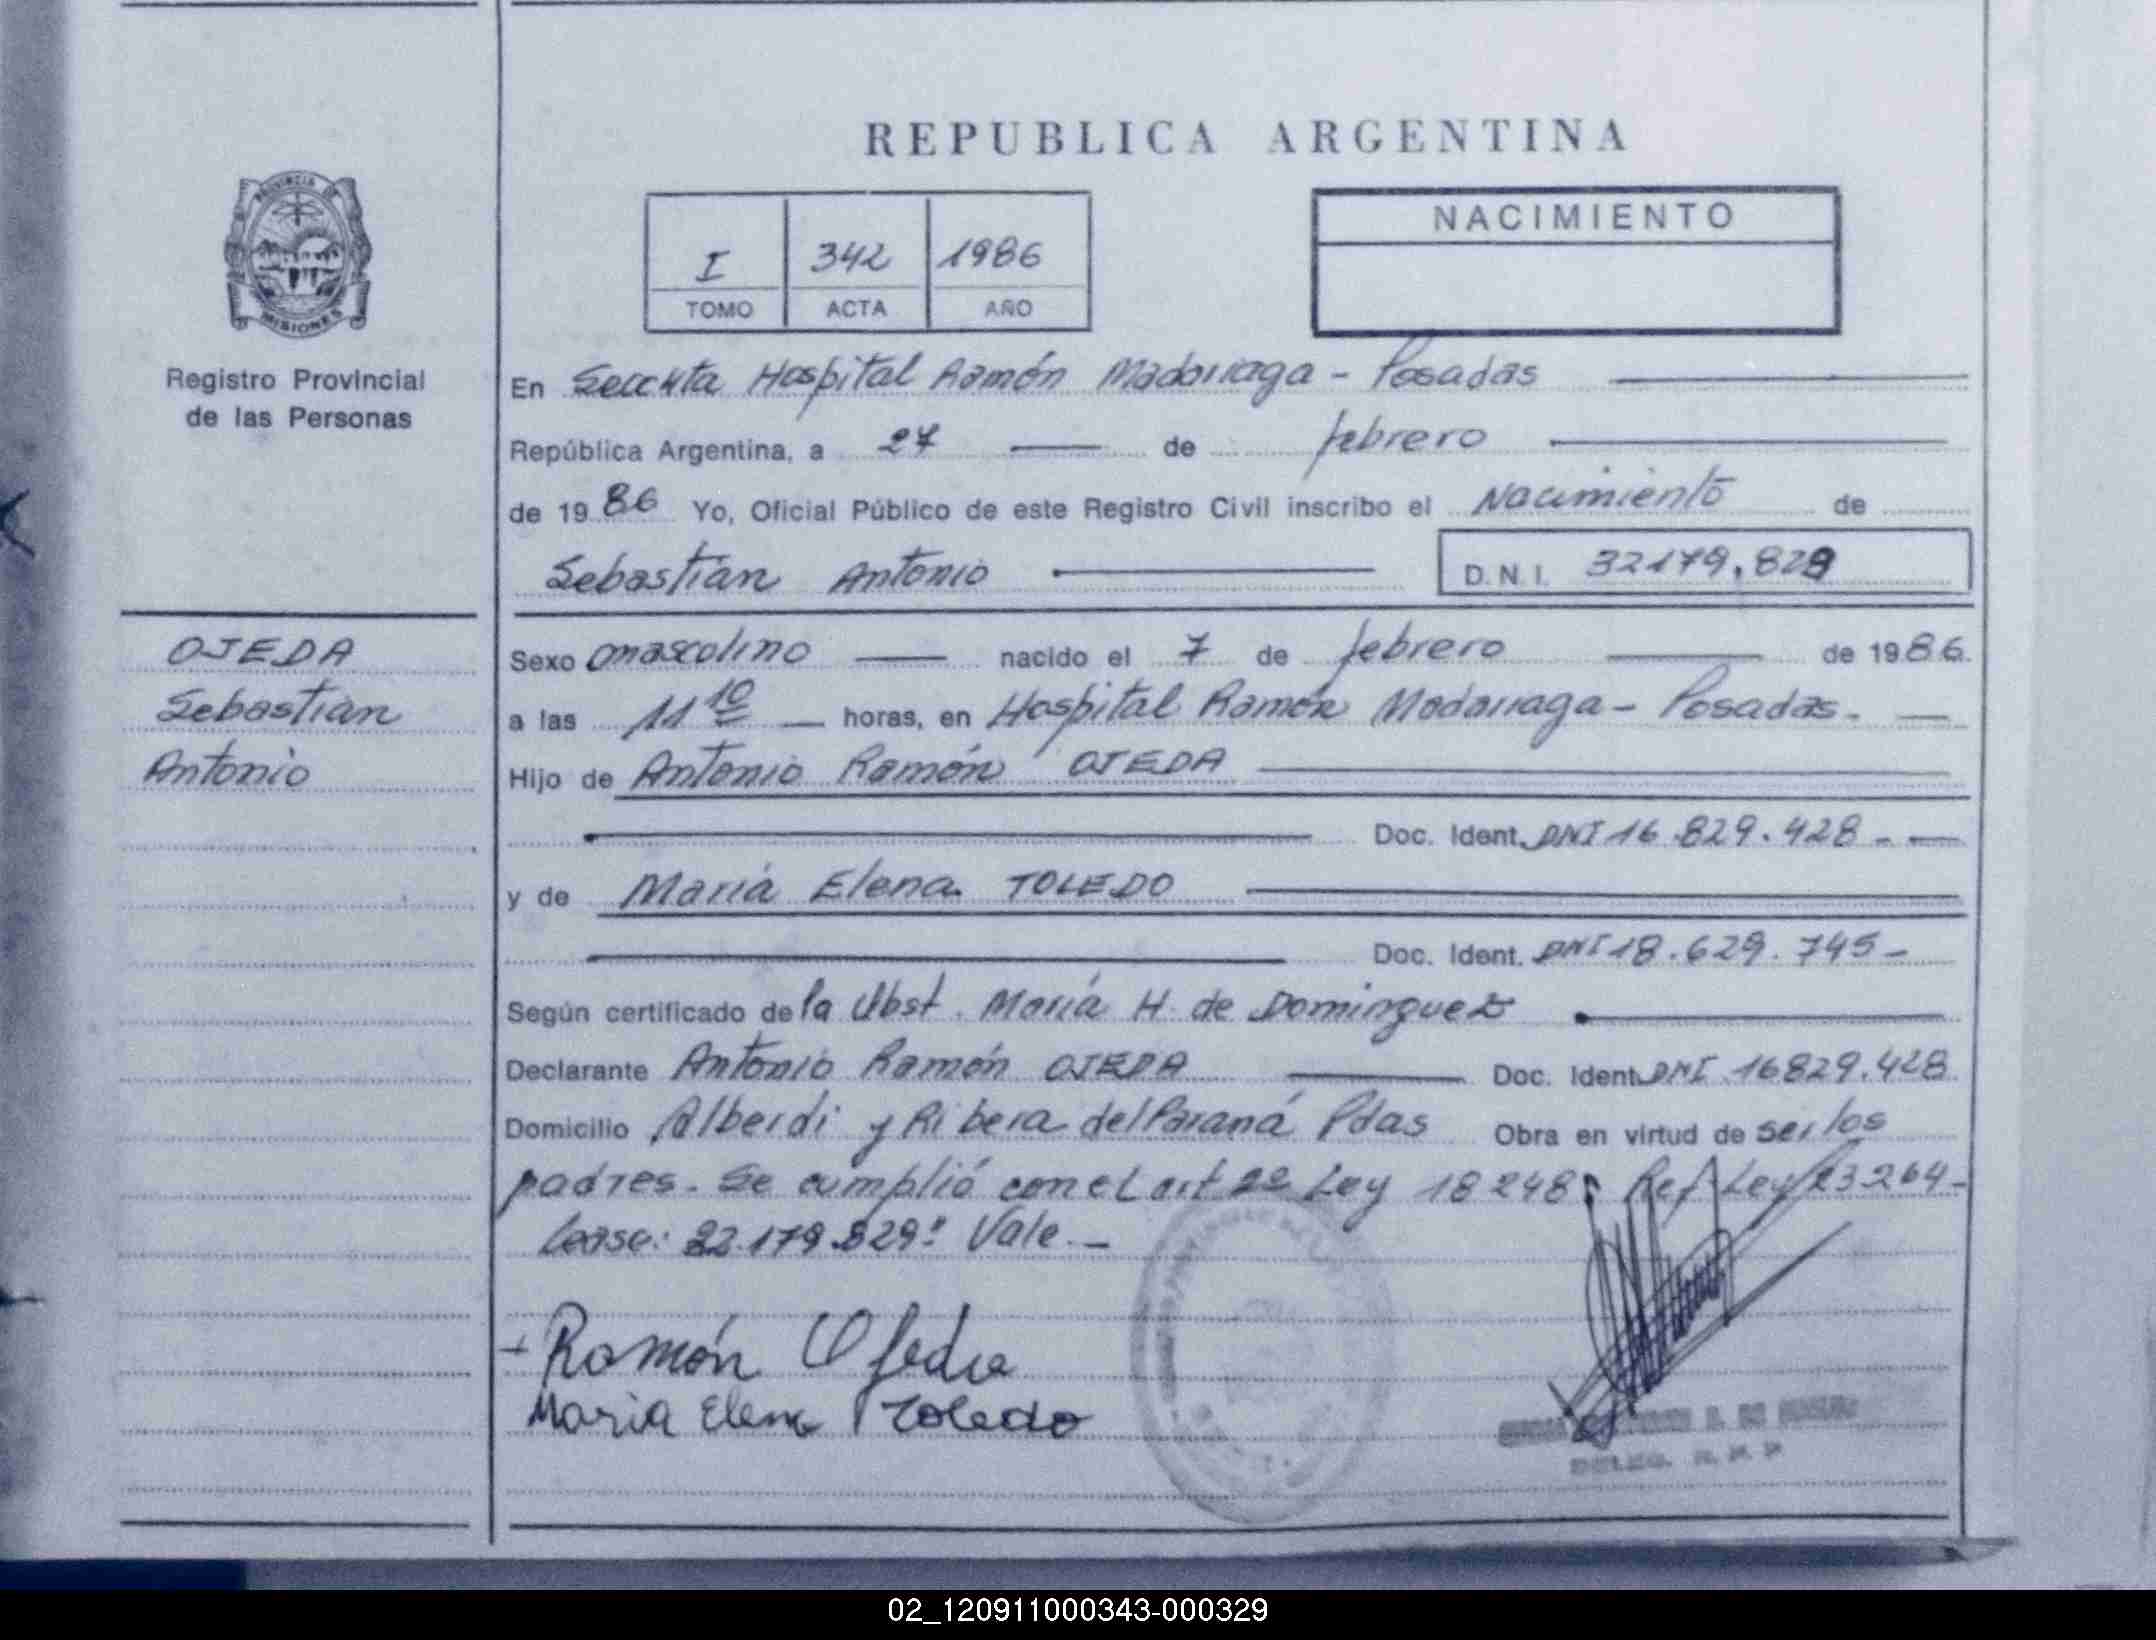 REPUBLICA ARGENTINA
PROVINCIA DE
MISIONES
Registro Provincial
de las Personas
I 342 1986
TOMO ACTA AÑO
NACIMIENTO
En Hospital Ramón Madariaga - Posadas
República Argentina, a 27 de febrero
de 1986 Yo, Oficial Público de este Registro Civil inscribo el Nacimiento de
Sebastian Antonio D.N.I. 32179.829
OJEDA
Sebastian
Antonio
Sexo masculino nacido el 7 de febrero de 1986.
a las 11 10 horas, en Hospital Ramón Madariaga - Posadas.
Hijo de Antonio Ramón OJEDA
Doc. Ident. DNI 16.829.428 -
y de María Elena TOLEDO
Doc. Ident. DNI 18.629.745 -
Según certificado de la Obst. María H. de Dominguez
Declarante Antonio Ramón OJEDA Doc. Ident. DNI 16829.428
Domicilio Alberdi y Ribera del Paraná Pdas Obra en virtud de ser los
padres. Se cumplió con el art 2º Ley 18248 Ref. Ley 23264 -
Lease: 32.179.829" Vale. -
Ramón Ojeda
Maria Elena Toledo
DELEG. R. P. P
02_120911000343-000329